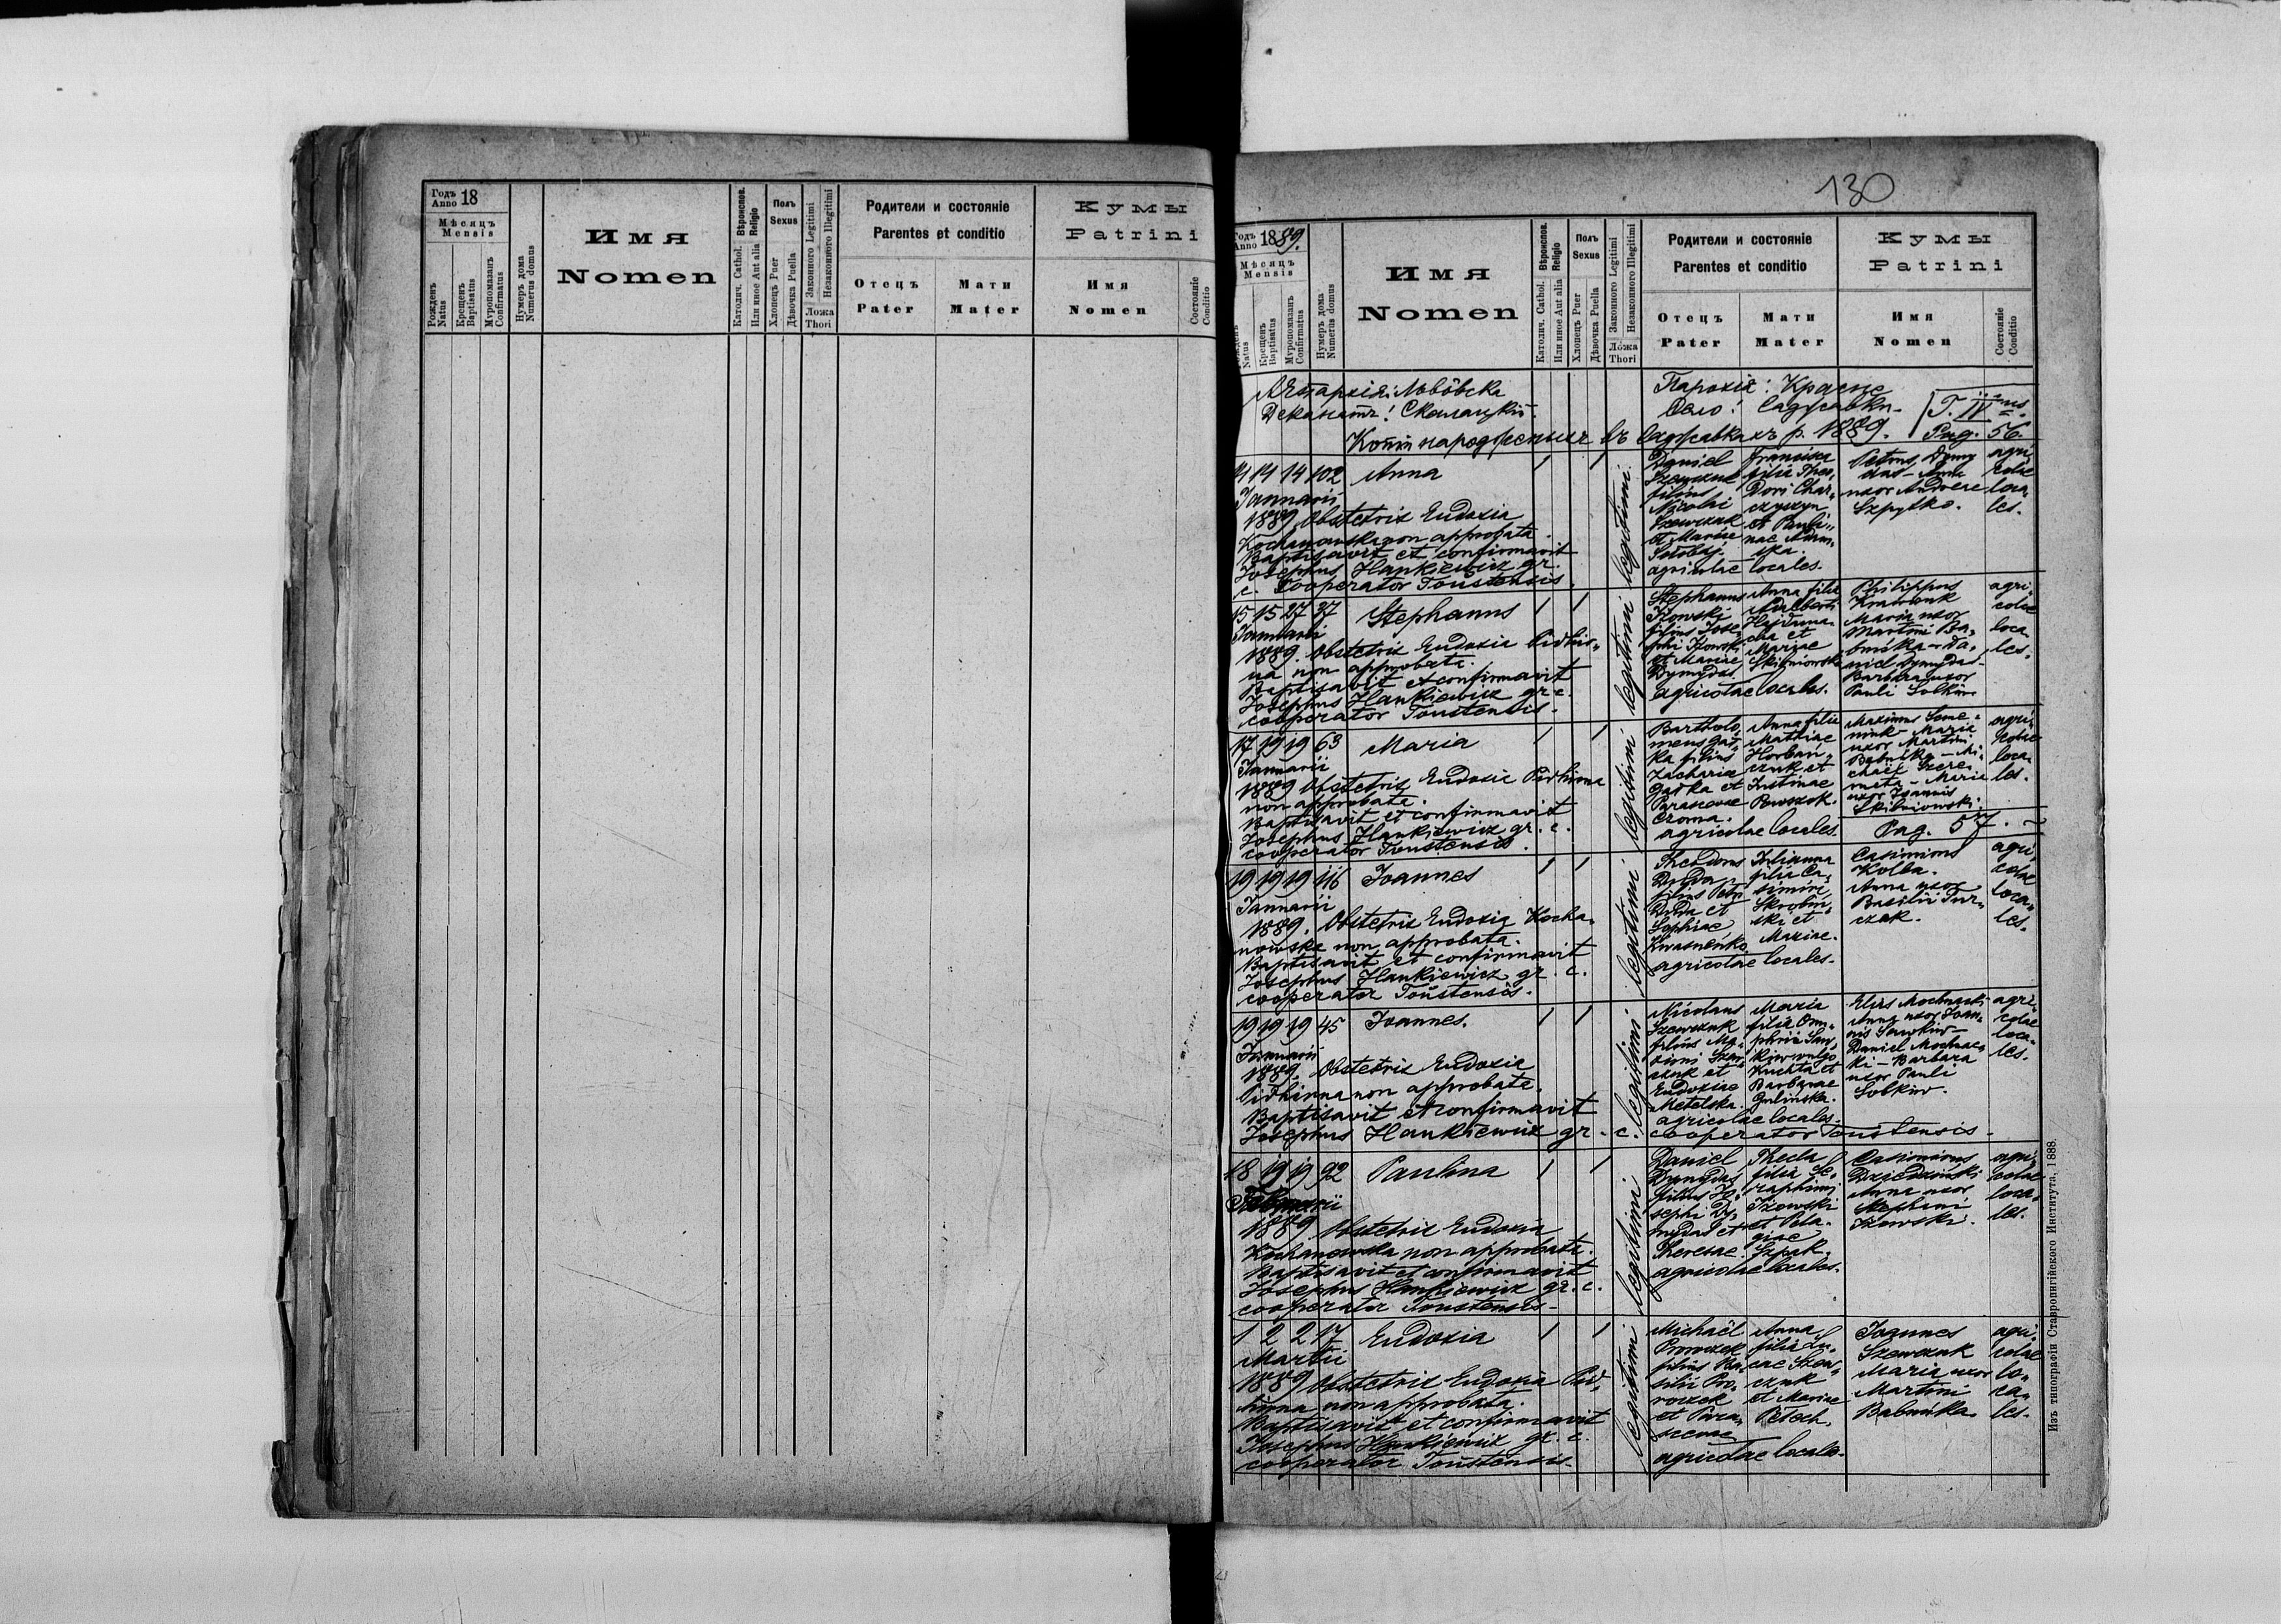 Годъ Anno 18
Мѣсяцъ
Mensis
Рожденъ Natus
Крещенъ Baptisatus
Мѵропомазанъ Confirmatus
Нумеръ дома Numerus domus
Имя
Nomen
Вѣроиспов. Religio
Католич. Cathol.
Или иное Aut alia
Полъ
Sexus
Хлопецъ Puer
Дѣвочка Puella
Законного Legitimi
Незаконного Illegitimi
Ложа
Thori
Родители и состояніе
Parentes et conditio
Отецъ
Pater
Мати
Mater
Кумы
Patrini
Имя
Nomen
Состояніе
Conditio
130
Годъ Anno 1889.
Мѣсяцъ
Mensis
Natus
Крещенъ Baptisatus
Мѵропомазанъ Confirmatus
Нумеръ дома Numerus domus
Имя
Nomen
Вѣроиспов. Religio
Католич. Cathol.
Или иное Aut alia
Полъ
Sexus
Хлопецъ Puer
Дѣвочка Puella
Законного Legitimi
Незаконного Illegitimi
Ложа
Thori
Родители и состояніе
Parentes et conditio
Отецъ
Pater
Мати
Mater
Кумы
Patrini
Имя
Nomen
Состояніе
Conditio
Львôвска
Деканатъ: Скалацкій.
Парохія: Красне
Село: Саджавки.
T. IV
Pag. 56.
въ Саджавкахъ р. 1889.
14 14 102 Anna
Januarii
1889. Obstetrix Eudoxia
Kochanowska non approbata.
Baptisavit et confirmavit
Josephus Hankiewicz gr.
c. Cooperator Toustensis.
legitimi
Daniel
Szewczuk
filius
Nicolai
Szewczuk
et Mariae
agricolae locales.
Francisca
filia Theo-
dori Char-
czyszyn
et Pauli-
nae
Petrus Dymy
das - Anna
uxor Andreae
Szpytko.
agri
colae
loca
les.
15 15 27 37 Stephanus
Januarii
1889. Obstetrix Eudoxia Pidhir-
na non approbata.
Baptisavit et confirmavit
Josephus Hankiewicz gr. c.
cooperator Toustensis.
legitimi
Stephanus
Izowski
filius Jose-
phi Izowski
et Mariae
Dymydas
agricolae locales.
Anna filia
Adalberti
cha et
Mariae
Skibniowska
Philippus
Maria uxor
Martini Ba-
bnirka - Da-
niel Dymydas -
Barbara uxor
Pauli Solkiw
agri-
colae
loca
les.
17 19 19 63 Maria
Januarii
1889 Obstetrix Eudoxia Pidhirna
non approbata.
Baptisavit et confirmavit
Josephus Hankiewicz gr. c.
cooperator Toustensis.
legitimi
Bartholo-
meus Gad-
ka filius
Zachariae
Gadka et
Parascevae
agricolae locales.
Anna filia
Mathiae
Horban-
czuk et
Justinae
Maximus Seme-
niuk - Maria
uxor Martini
chael Szere-
meta - Maria
uxor Joannis
Skibniowski.
agri-
colae
loca
les.
Pag. 57.
19 19 19 116 Joannes
Januarii
1889. Obstetrix Eudoxia Kocha-
nowska non approbata.
Baptisavit et confirmavit
Josephus Hankiewicz gr. c.
cooperator Toustensis.
legitimi
Theodorus
Duda
filius Petri
Duda et
Sophiae
agricolae locales.
Julianna
filia Ca-
simiri
Skrobin-
ski et
Mariae.
Casimirus
Kolba.
Anna uxor
Basilii Tur-
czak.
agri
colae
loca-
les.
19 19 19 45 Joannes.
Januarii
1889. Obstetrix Eudoxia
Pidhirna non approbata.
Baptisavit et confirmavit
Josephus Hankiewicz gr. c. cooperator Toustensis.
legitimi
Nicolaus
Szewczuk
filius Ma-
ximi Szew-
czuk et
Eudoxiae
Metelska.
agricolae locales.
Maria
filia Onu-
phrii Saw-
kiw vulgo
Kuchta et
Barbarae
Gulinska.
Elias Mochnacki
Anna uxor Joan-
nis Sawkiw -
Daniel Mochnac-
ki - Barbara
uxor Pauli
Solkiw.
agri-
colae
loca-
les.
18 19 19 92 Paulina
Februarii
1889 Obstetrix Eudoxia
Kochanowska non approbata.
Baptisavit et confirmavit
Josephus Hankiewicz gr. c.
cooperator Toustensis.
legitimi
Daniel
Dymydas
filius Jo-
sephi Dy-
mydas et
Theresae
agricolae locales.
Thecla
filia Se-
raphimi
Izowski
et Pela-
giae
Szpak.
Casimirus
Dziedzinski
Anna uxor
Stephani
Izowski.
agri-
colae
loca-
les.
1 2 2 17 Eudoxia
Martii
1889 Obstetrix Eudoxia Pid-
hirna non approbata.
Baptisavit et confirmavit
Josephus Hankiewicz gr. c.
cooperator Toustensis.
legitimi
Michaël
Proroczek
filius Ba-
silii Pro-
roczek
et Para-
scevae
agricolae locales.
Anna
filia Lu-
cae Szew-
czuk
et Mariae
Petech.
Joannes
Szewczuk
Maria uxor
Martini
Babnirka
agri-
colae
lo-
ca-
les.
Изъ типографіи Ставропигійского Института, 1888.